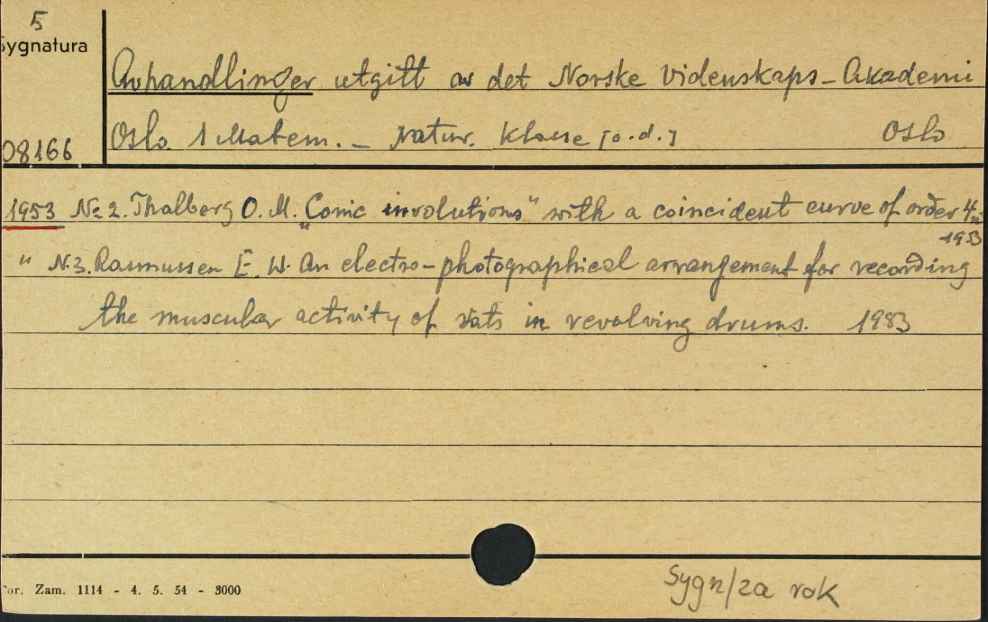 5
Sygnatura
Avhandlinger utgitt av det Norske Videnskaps-Akademi
08166
Oslo. I Matem. - Natur. Klasse [o.d.] Oslo
1953 № 2. Thalberg O. M. "Conic involutions" with a coincident curve of order 4n
1953
" N.3. Rasmussen E. W. An electro-photographical arrangement for recording
the muscular activity of rats in revolving drums. 1953
or. Zam. 1114 - 4. 5. 54 - 3000
Sygn/za rok